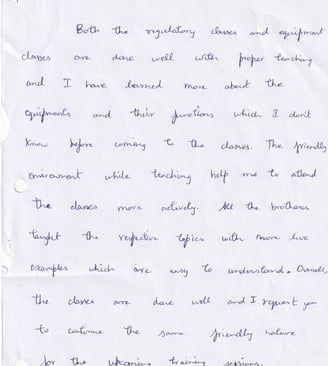 Both the regulatory classes and equipment
classes are done well with proper teaching
and I have learned more about the
equipments and their functions which I don't
know before coming to the classes. The friendly
environment while teaching help me to attend
the classes more actively. All the brothers
taught the respective topics with more live
examples which are easy to understand. Overall,
the classes are done well and I request you
to continue the same friendly nature
for the upcoming training sessions.